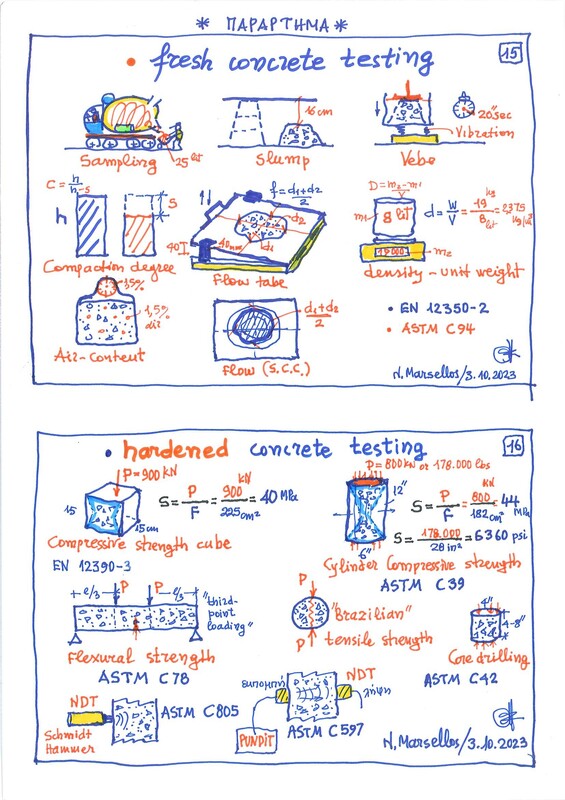 * ΠΑΡΑΡΤΗΜΑ *
15
• fresh concrete testing
Sampling
25 lit
16 cm
Slump
20" sec
Vibration
Vebe
C = h/h-s
h
S
Compaction degree
f = d1+d2/2
d2
d1
40
40mm
Flow table
D = m2-m1/V
m1
8 lit
m2
d = W/V = 19 kg/8 lit = 2,375 kg/lit
density - unit weight
1,5%
1,5% air
Air-content
d1+d2/2
Flow (S.C.C.)
• EN 12350-2
• ASTM C94
N. Marsellos/3.10.2023
16
• hardened concrete testing
P = 900 kN
15
15cm
S = P/F = 900 kN/225 cm² = 40 MPa
Compressive strength cube
EN 12390-3
P = 800 kN or 178.000 lbs
12"
6"
S = P/F = 800 kN/182 cm² = 44 MPa
S = 178.000/28 in² = 6360 psi
Cylinder Compressive strength
ASTM C39
P
P
"third-point loading"
Flexural strength
ASTM C78
P
P
"Brazilian"
tensile strength
4"
4-8"
Core drilling
ASTM C42
NDT
Schmidt Hammer
ASTM C805
PUNDIT
NDT
ASTM C597
N. Marsellos/3.10.2023